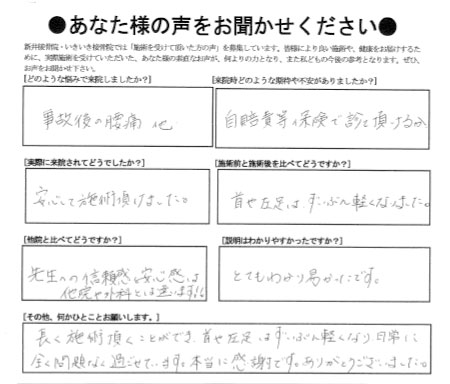 ●あなた様の声をお聞かせください●
新井接骨院・いきいき接骨院では「施術を受けて頂いた方の声」を募集しています。皆様により良い施術や、健康をお届けするため
に、実際施術を受けていただいた、あなた様の素直なお声が、何よりの力となり、また私どもの今後の参考となります。ぜひ、
お声をお聞かせ下さい。
[どのような悩みで来院しましたか?]
事故後の腰痛 他
[来院時どのような期待や不安がありましたか?]
自賠責等保険で診て頂けるか
[実際に来院されてどうでしたか?]
安心して施術頂けました。
[施術前と施術後を比べてどうですか?]
首や左足は、ずいぶん軽くなりました。
[他院と比べてどうですか?]
先生への信頼感と安心感は
他院や外科とは違います!!
[説明はわかりやすかったですか?]
とてもわかり易かったです。
[その他、何かひとことお願いします。]
長く施術頂くことができ、首や左足はずいぶん軽くなり日常に
全く問題なく過ごせています。本当に感謝です。ありがとうございました。